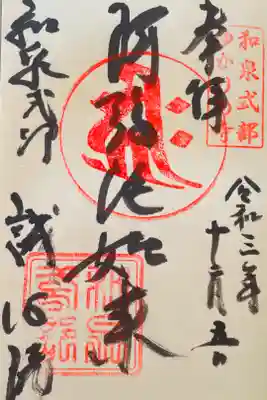 和泉式部
ゆかりの寺
奉拝
令和三年
十二月五日
阿弥陀如来
和泉式部
誠心院